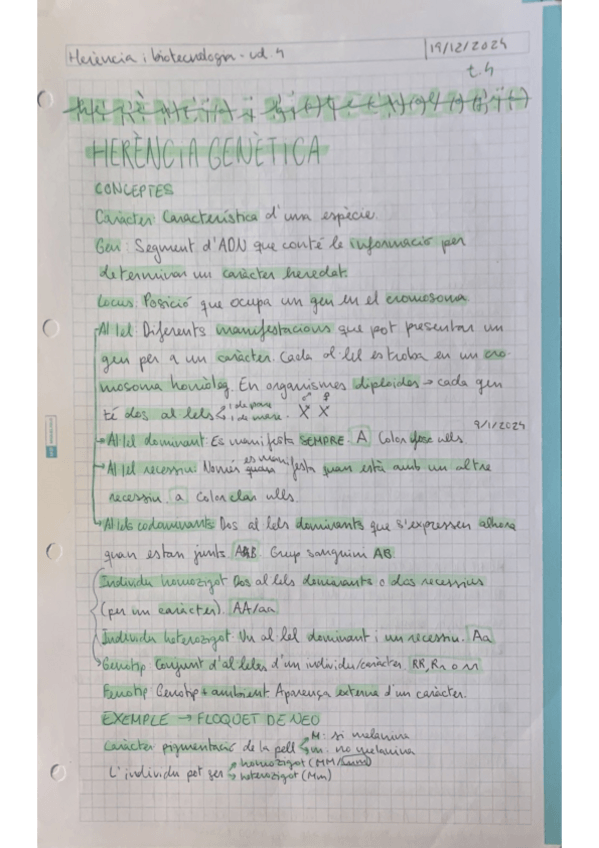 Herència i biotecnologia - ud. 4
19/12/2024
t.4
HERÈNCIA GENÈTICA
CONCEPTES
Caràcter: Característica d'una espècie.
Gen: Segment d'ADN que conté la informació per
determinar un caràcter heredat.
Locus: Posició que ocupa un gen en el cromosoma
Al·lel: Diferents manifestacions que pot presentar un
gen per a un caràcter. Cada al·lel es troba en un cro-
mosoma homòleg. En organismes diploides → cada gen
té dos al·lels 1 de pare 1 de mare. ♂ ♀ X X
9/1/2024
Al·lel dominant: Es manifesta SEMPRE. A Color fosc ulls.
Al·lel recessiu: Només es manifesta quan està amb un altre
recessiu. a Color clar ulls.
Al·lels codominants: Dos al·lels dominants que s'expressen alhora
quan estan junts. AB. Grup sanguini AB
Individu homozigot: Dos al·lels dominants o dos recessius
(per un caràcter). AA/aa
Individu heterozigot: Un al·lel dominant i un recessiu. Aa
Genotip: Conjunt d'al·lels d'un individu/caràcter RR, Rr o rr
Fenotip: Genotip + ambient. Aparença externa d'un caràcter.
EXEMPLE → FLOQUET DE NEU
Caràcter pigmentació de la pell M: si melanina
m: no melanina
L'individu pot ser homozigot (MM/mm)
heterozigot (Mm)